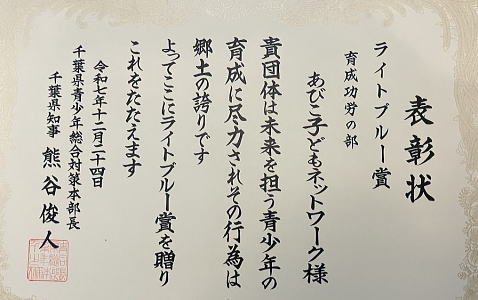 表彰状
ライトブルー賞
育成功労の部
あびこ子どもネットワーク様
貴団体は未来を担う青少年の
育成に尽力されその行為は
郷土の誇りです
よってここにライトブルー賞を贈り
これをたたえます
令和七年十二月二十四日
千葉県青少年総合対策本部長
千葉県知事 熊谷俊人